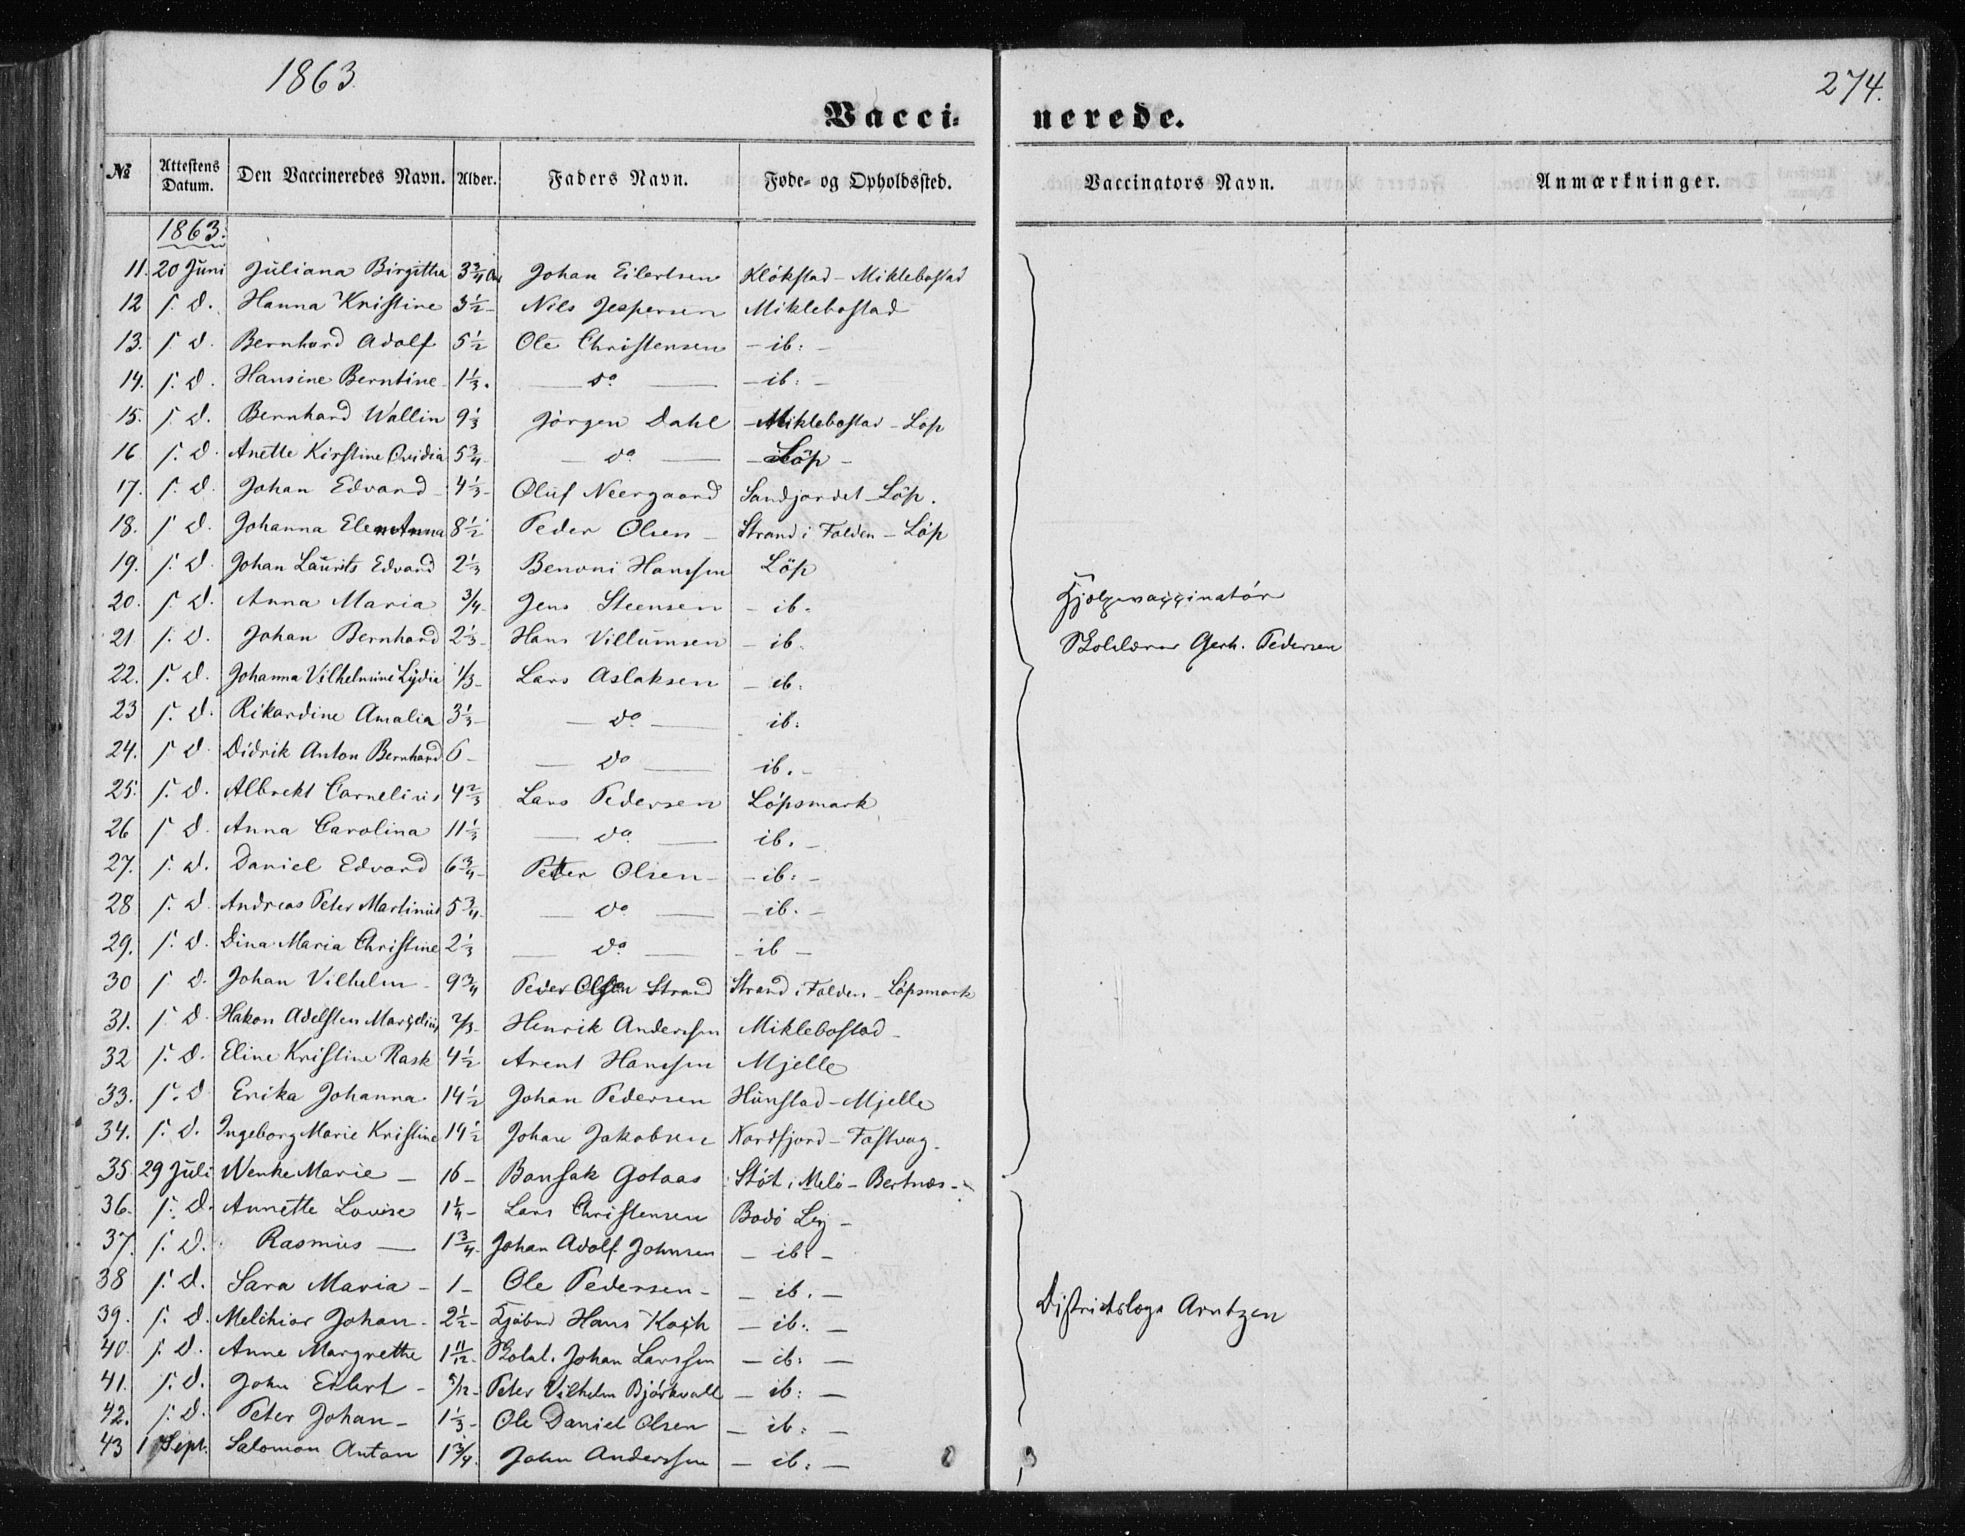 1863
274.
Vacci- nerede.
№ Attestens Datum. Den Vaccineredes Navn. Alder. Faders Navn. Føde- og Opholdssted. Vaccinators Navn. Anmærkninger.
1863.
11. 20 Juni Juliana Birgitha 3 3/4 Johan Eilertsen Klökstad - Miklebostad
12 s. D. Hanna Kristine 3 1/2 - Nils Jespersen Miklebostad
13. s. D. Bernhard Adolf 5 1/2 Ole Christensen - ib: -
14. s. D. Hansine Berntine 1 1/3. — do — - ib: -
15. s. D. Bernhard Wallin 9 1/3 Jörgen Dahl - Miklebostad - Löp
16. s. D. Anette Kirstine Ovidia 5 3/4 — do — - Löp -
17. s. D. Johan Edvard 4 1/3 - Oluf Neergaard Sandjordet - Löp.
18. s. D. Johanna Elen Anna 8 1/2 Peder Olsen - Strand i Folden - Löp
19. s. D. Johan Laurits Edvard 2 1/3 Benoni Hanssen Löp
20. s. D. Anna Maria 3/4 - Jens Steensen - ib.
21 s. D. Johan Bernhard 2 1/3 - Hans Villumsen - ib.
22. s. D. Johanna Vilhelmine Lydia 1/3 - Lars Aslaksen - ib.
23 s. D. Rikardine Amalia 3 1/3 - — do — ib:
24. s. D. Didrik Anton Bernhard 6 - — do — ib. -
25. s. D. Albrekt Cornelius 4 2/3 Lars Pedersen Löpsmark
26 s. D. Anna Carolina 11 1/3 — do — ib. -
27. s. D. Daniel Edvard 6 3/4 - Peter Olsen - - ib: -
28 s. D. Andreas Peter Martinus 5 3/4 — do — - ib. -
29. s. D. Dina Maria Christine 2 1/3 — do — - ib -
30 s. D. Johan Vilhelm - 9 3/4 Peder Olsen Strand Strand i Folden - Löpsmark
31. s. D. Hakon Adelsten 2/3 - Henrik Anderssen Miklebostad -
32 s. D. Eline Kristine Rask 4 1/2 Arent Hanssen Mjelle
33. s. D. Erika Johanna 14 1/2 Johan Pedersen Hunstad - Mjelle
34. s. D. Ingeborg Marie Kristine 14 1/2 Johan Jakobsen Nordfjord - Fastvag.
Hjelpevaccinatör
Skolelærer Gerh. Pedersen
35 29 Juli Wenke Marie - 16 - Bonsak Gotaas Stöt i Melö - Bertnæs -
36. s. D. Annette Lovise 1 1/4 - Lars Christensen Bodö
37. s. D. Rasmus — 1 3/4 - Johan Adolf Johnsen - ib: -
38 s. D. Sara Maria - 1 - Ole Pedersen - - ib. -
39. s. D. Melchior Johan - 2 1/2 - Hans Koch - ib: -
40. s. D. Anne Margrethe 1 11/12 - Skolel. Johan Larssen - ib: -
41. s. D. John Eilert - 5/12 - Peter Vilhelm Björkvall - ib: -
42. s. D. Peter Johan - 1 1/3 - Ole Daniel Olsen - ib: -
43 1 Sept. Salomon Anton 1 3/4. John Anderssen - ib: -
Distriktslæge Arntzen